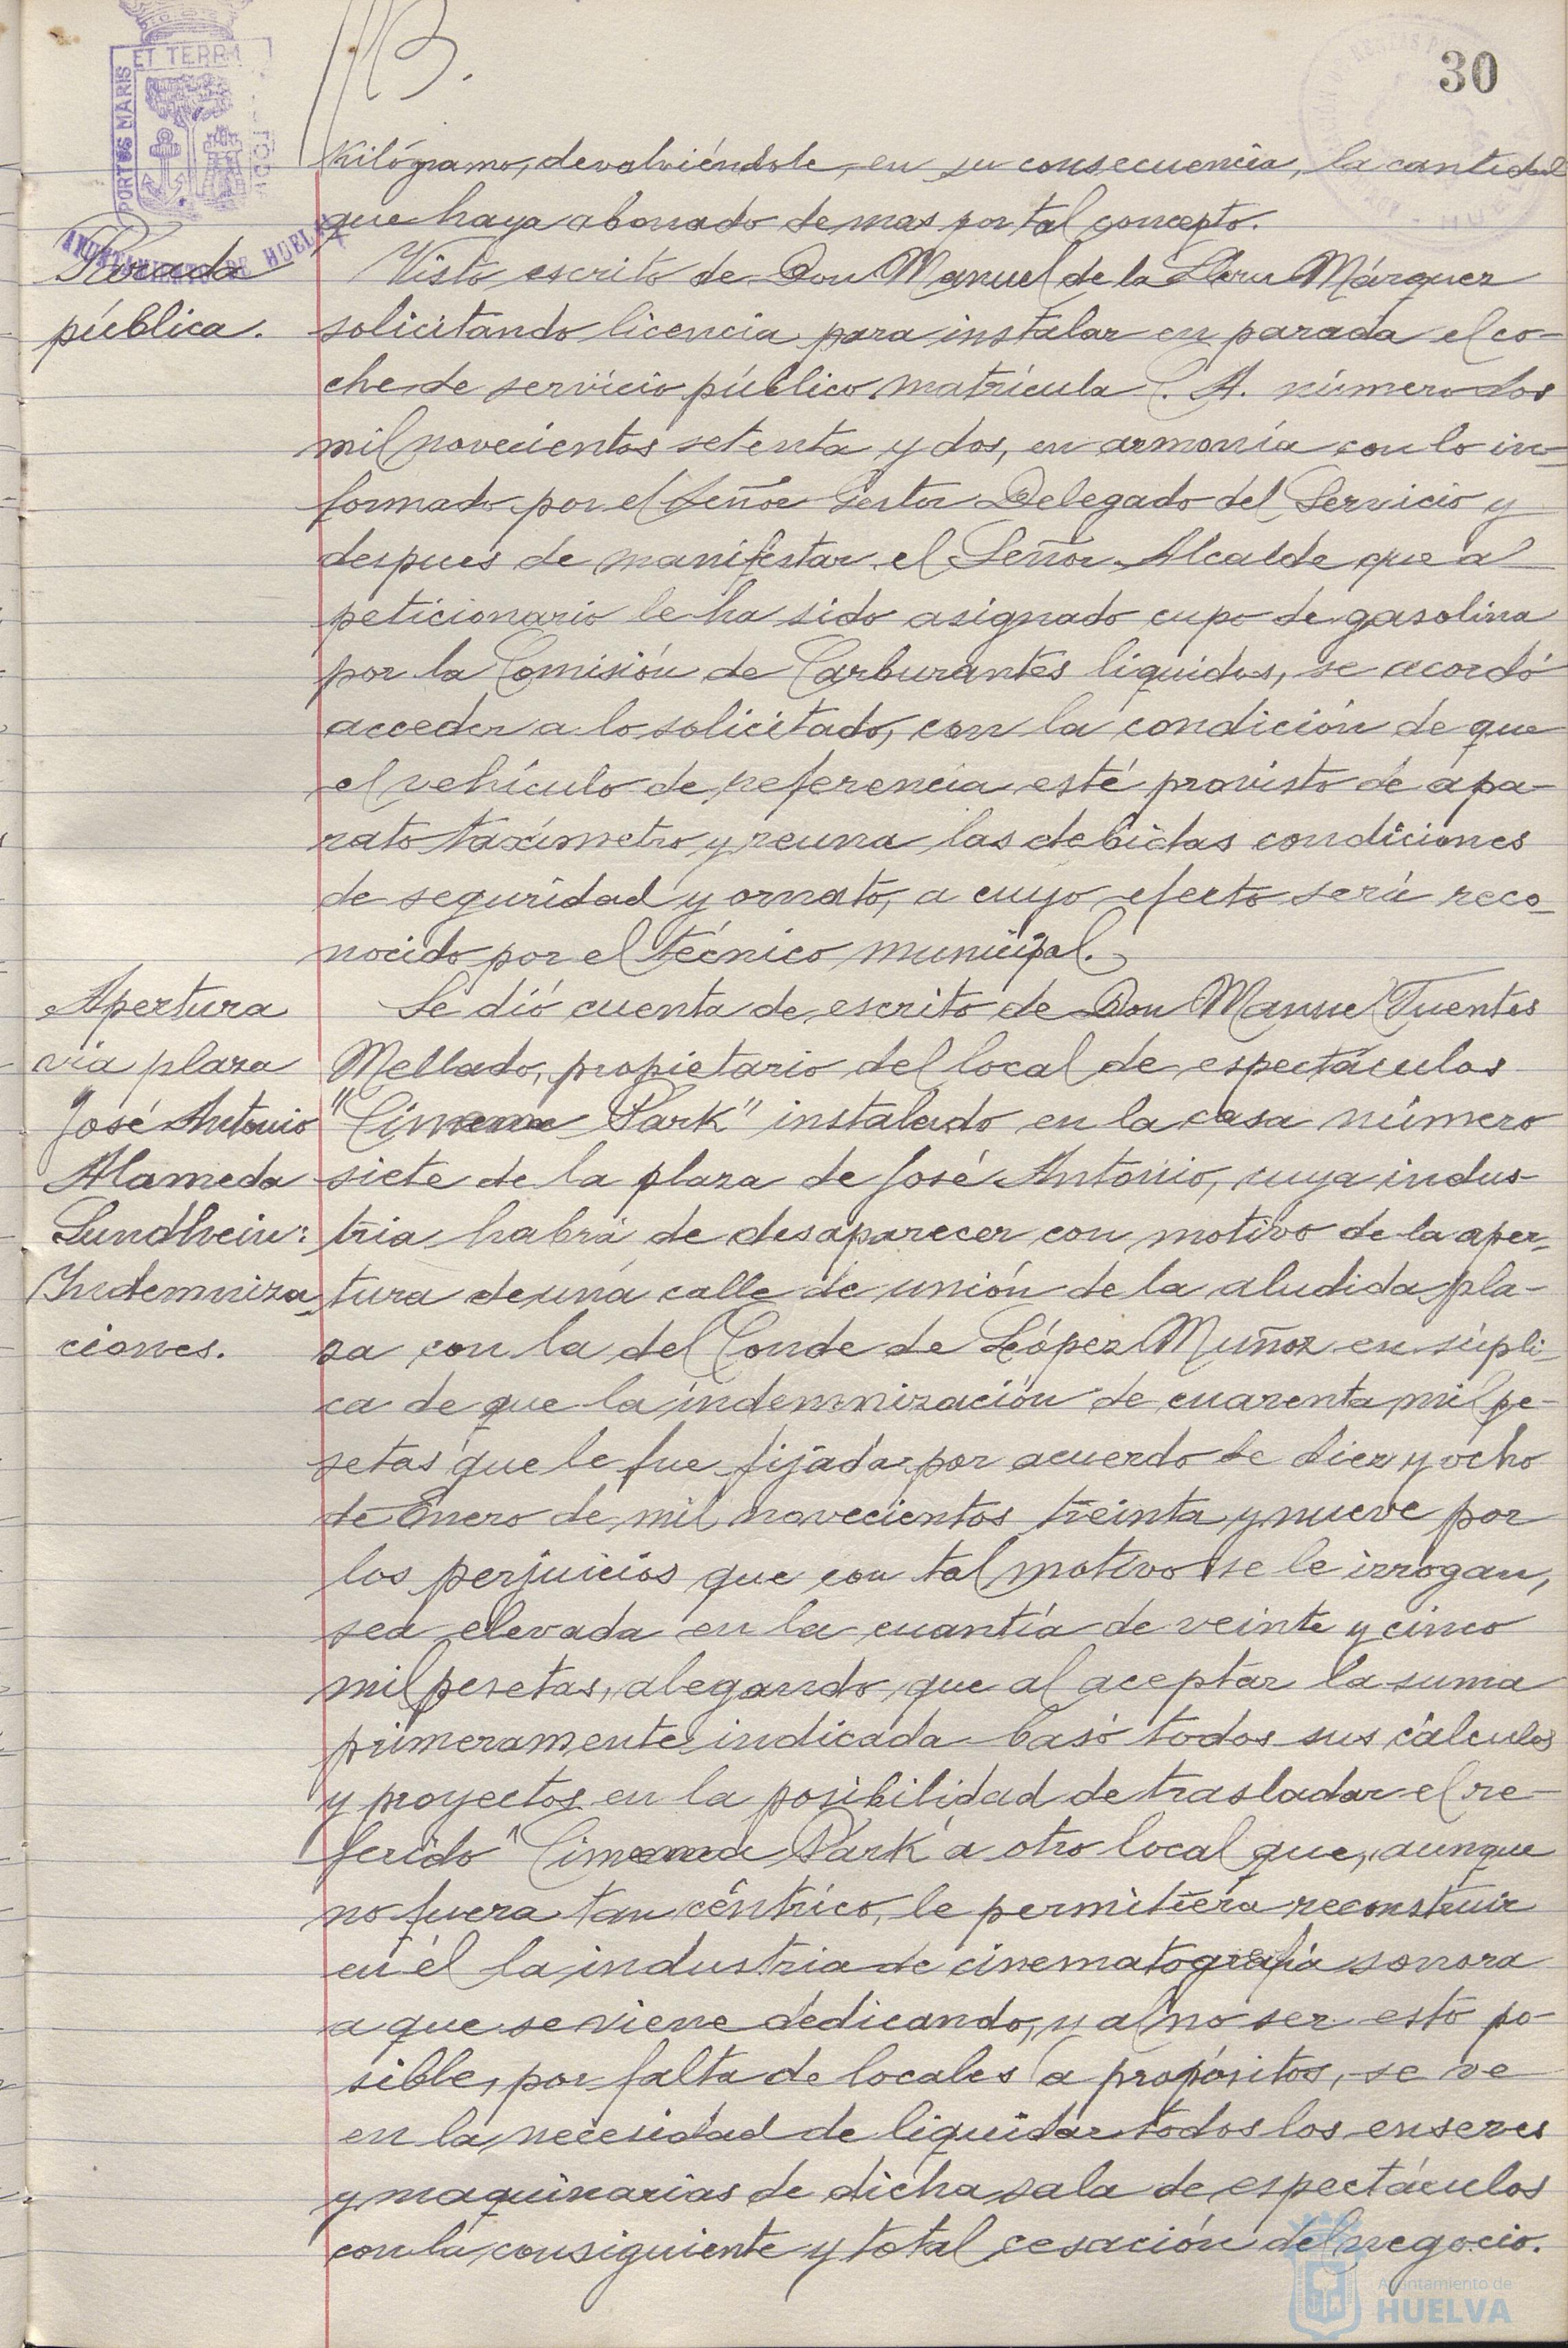 30
PORTUS MARIS ET TERRÆ CUSTODIA
AYUNTAMIENTO DE HUELVA
kilógramo, devolviéndole, en su consecuencia, la cantidad
que haya abonado de mas por tal concepto.
Parada
pública.
Visto escrito de Don Manuel de la Llera Márquez
solicitando licencia para instalar en parada el co-
che de servicio público matrícula C. A. número dos
mil novecientos setenta y dos, en armonía con lo in-
formado por el Señor Gestor Delegado del Servicio y
despues de manifestar el Señor Alcalde que al
peticionario le ha sido asignado cupo de gasolina
por la Comisión de Carburantes liquidos, se acordó
acceder a lo solicitado, con la condición de que
el vehículo de referencia esté provisto de apa-
rato taxímetro y reuna las debidas condiciones
de seguridad y ornato, a cuyo efecto será reco-
nocido por el técnico municipal.
Apertura
via plaza
José Antonio
Alameda
Sundheim:
Indemniza-
ciones.
Se dió cuenta de escrito de Don Manuel Fuentes
Mellado, propietario del local de espectáculos
"Cinema Park" instalado en la casa número
siete de la plaza de José Antonio, cuya indus-
tria habrá de desaparecer con motivo de la aper-
tura de una calle de unión de la aludida pla-
za con la del Conde de López Muñoz en súpli-
ca de que la indemnización de cuarenta mil pe-
setas que le fue fijada por acuerdo de diez y ocho
de Enero de mil novecientos treinta y nueve por
los perjuicios que con tal motivo se le irrogan,
sea elevada en la cuantía de veinte y cinco
mil pesetas, alegando que al aceptar la suma
primeramente indicada basó todos sus cálculos
y proyectos en la posibilidad de trasladar el re-
ferido "Cinema Park" a otro local que, aunque
no fuera tan céntrico, le permitiera reconstruir
en él la industria de cinematografía sonora
a que se viene dedicando, y al no ser esto po-
sible, por falta de locales a propósitos, se ve
en la necesidad de liquidar todos los enseres
y maquinarias de dicha sala de espectáculos
con la consiguiente y total cesación del negocio.
Ayuntamiento de
HUELVA